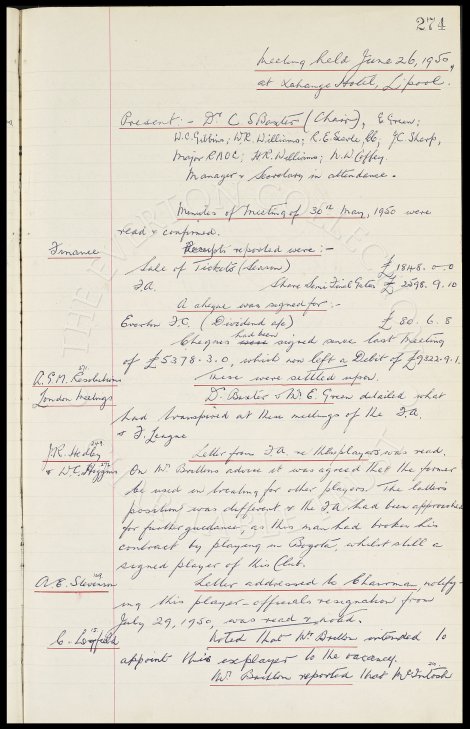 274
Meeting held June 26, 1950,
at Exchange Hotel, L'pool.
Present:- Dr C. S. Baxter (Chair), E Green;
W.C. Gibbins; W.R. Williams; R.E. Searle, &c, J.C. Sharp,
Major H.R. Williams; N.W. Coffey.
Manager & Secretary in attendance.
Minutes of Meeting of 30th May, 1950 were
read & confirmed.
Finance Receipts reported were:-
Sale of Tickets (Season) £1848.0.0
F.A. Share Semi Final Gates £2898.9.10
A cheque was signed for:-
Everton F.C. (Dividend a/c) £80.6.8
Cheques had been signed since last Meeting
of £5378.3.0, which now left a Debit of £9322.9.1.
A.G.M. Resolutions These were settled upon.
London Meetings Dr Baxter & Mr E. Green detailed what
had transpired at these meetings of the F.A.
& F. League
J.R. Hedley Letter from F.A. re these players was read.
& W.C. Higgins On Mr Brittons advice it was agreed that the former
be used in for other players. The latter's
position was different & the F.A. had been approached
for further guidance, as this man had broken his
contract by playing in Bogota, whilst still a
signed player of this Club.
A.E. Stevenson Letter addressed to Chairman, notify-
ing this player-officials resignation from
July 29, 1950, was read & noted.
C. Leyfield Noted that Mr Britton intended to
appoint this explayer to the vacancy.
Mr Britton reported that McIntosh
THE EVERTON COLLECTION